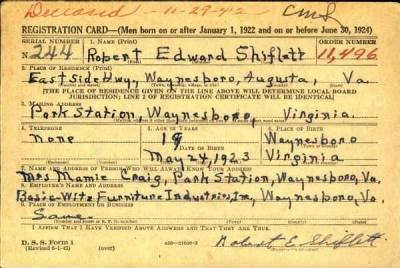 Deceased - 11-29-42
REGISTRATION CARD—(Men born on or after January 1, 1922 and on or before June 30, 1924)
SERIAL NUMBER 1. NAME (Print) ORDER NUMBER
N 244 Robert Edward Shiflett 11,496
2. PLACE OF RESIDENCE (Print)
East Side Hwy, Waynesboro, Augusta, Va.
[THE PLACE OF RESIDENCE GIVEN ON THE LINE ABOVE WILL DETERMINE LOCAL BOARD
JURISDICTION; LINE 2 OF REGISTRATION CERTIFICATE WILL BE IDENTICAL]
3. MAILING ADDRESS
Park Station, Waynesboro, Virginia.
4. TELEPHONE 5. AGE IN YEARS 6. PLACE OF BIRTH
none 19 Waynesboro
DATE OF BIRTH
May 24, 1923 Virginia
7. NAME AND ADDRESS OF PERSON WHO WILL ALWAYS KNOW YOUR ADDRESS
Mrs Mamie Craig, Park Station, Waynesboro, Va.
8. EMPLOYER'S NAME AND ADDRESS
Basic-Witz Furniture Industries, Inc, Waynesboro, Va.
9. PLACE OF EMPLOYMENT OR BUSINESS
Same
I AFFIRM THAT I HAVE VERIFIED ABOVE ANSWERS AND THAT THEY ARE TRUE.
D. S. S. Form 1
(Revised 6-1-42) (over)
Robert E. Shiflett